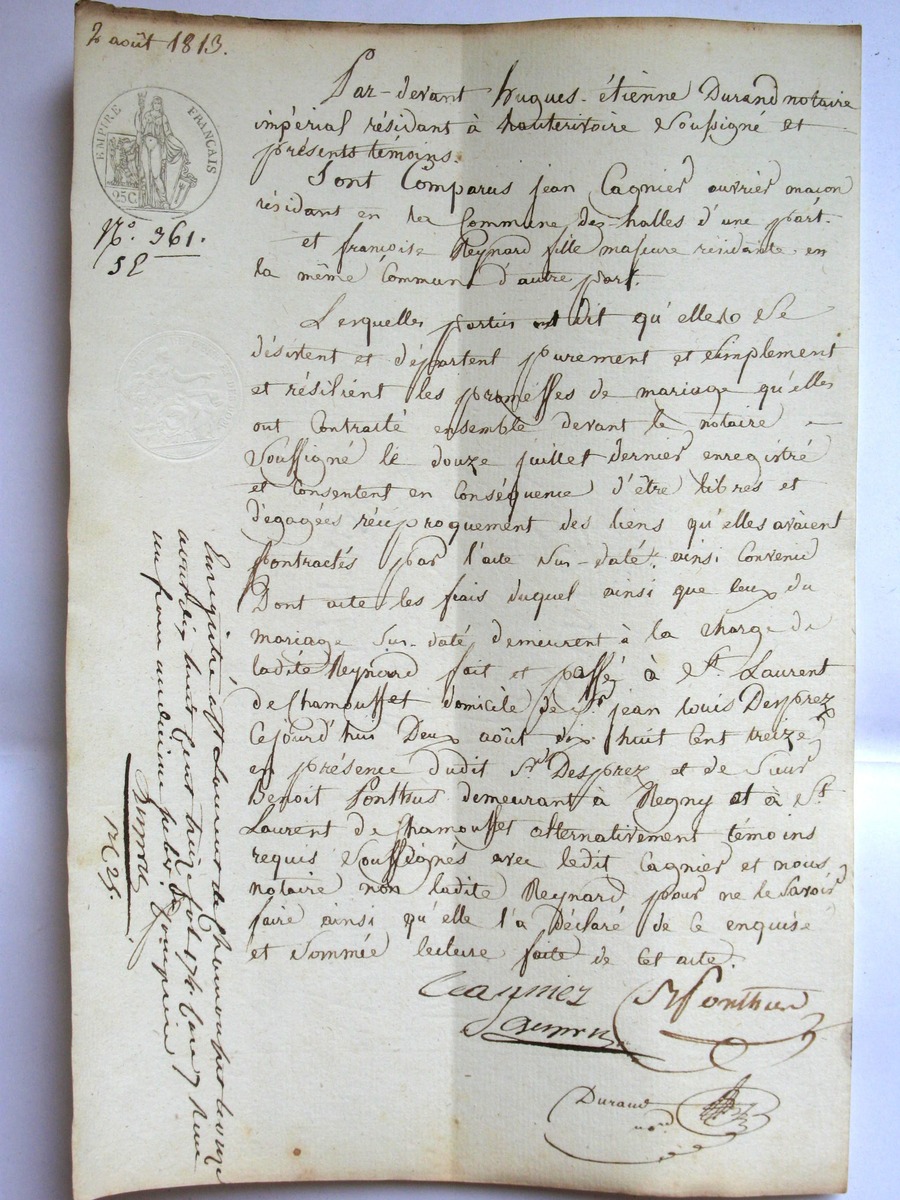 2 août 1813.
EMPIRE FRANÇAIS
25 C
N.° 361.
Par-devant hugues-étienne Durand notaire
impérial résidant à hauterivoire soussigné et
présents témoins.
Sont Comparus jean Cagnier ouvrier maçon
résidant en la Commune des-halles d'une part.
et françoise Reynard fille majeure résidante en
la même Commune d'autre part.
Lesquelles parties ont dit qu'elles se
désistent et départent purement et simplement
et résilient les promesses de mariage qu'elles
ont Contracté ensemble devant le notaire
soussigné le douze juillet dernier enregistré
et Consentent en Conséquence d'être libres et
dégagées réciproquement des liens qu'elles avaient
Contractés par l'acte sus-daté, ainsi Convenu
Dont acte les frais duquel ainsi que ceux du
mariage sus-daté demeurent à la charge de
ladite Reynard fait et passé à St. Laurent
de Chamousset domicile de Sr. jean Louis Desprez
Cejourd'hui Deux août dix huit cent treize
en présence dudit Sr. Desprez et de Sieur
Benoit Ponthus demeurant à Regny et à St.
Laurent de Chamousset alternativement témoins
requis soussignés avec ledit Cagnier et nous
notaire non ladite Reynard pour ne le savoir
faire ainsi qu'elle l'a Déclaré de Ce enquise
et sommée lecture faite de Cet acte.
Cagnier
Ponthus
Durand
Enregistré à St Laurent de Chamousset le onze
août dix huit cent treize fol. 174
un franc